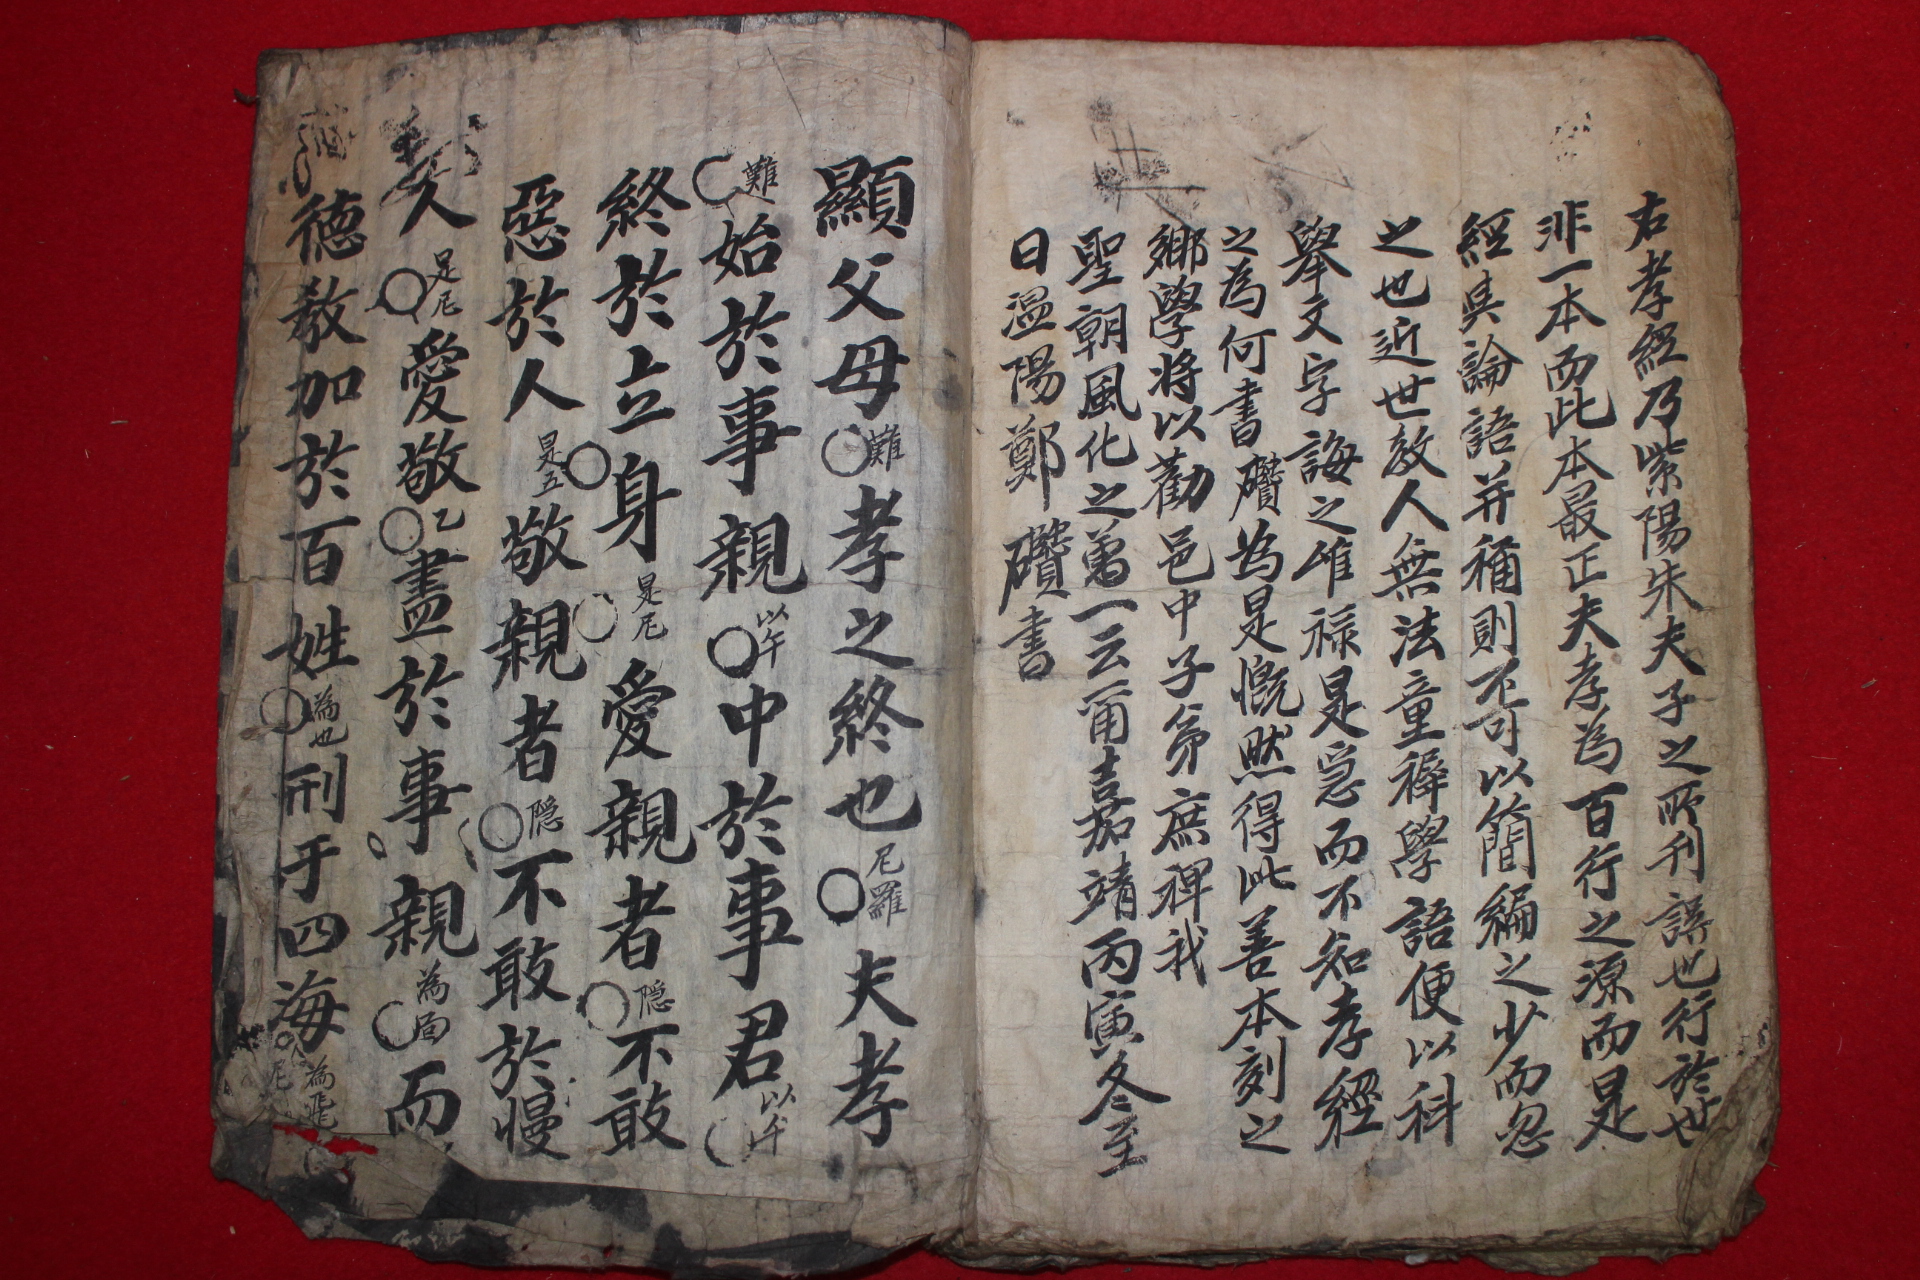 右孝經乃紫陽朱夫子之所刊誤也行於世
非一本而此本最正夫孝為百行之源而是
經與論語并稱則不可以簡編之少而忽
之也近世敎人無法童稺學語便以科
擧文字誨之唯祿是急而不知孝經
之為何書礸為是慨然得此善本刻之
鄉學將以勸邑中子弟庶裨我
聖朝風化之萬一云甭嘉靖丙寅冬至
日溫陽鄭礸書
顯父母○難孝之終也○尼羅夫孝
○難始於事親○以午中於事君○以午
終於立身○是尼愛親者○隠不敢
惡於人○是五敬親者○隠不敢於慢
人○是尼愛敬○乙盡於事親○為面而
德敎加於百姓○為也刑于四海